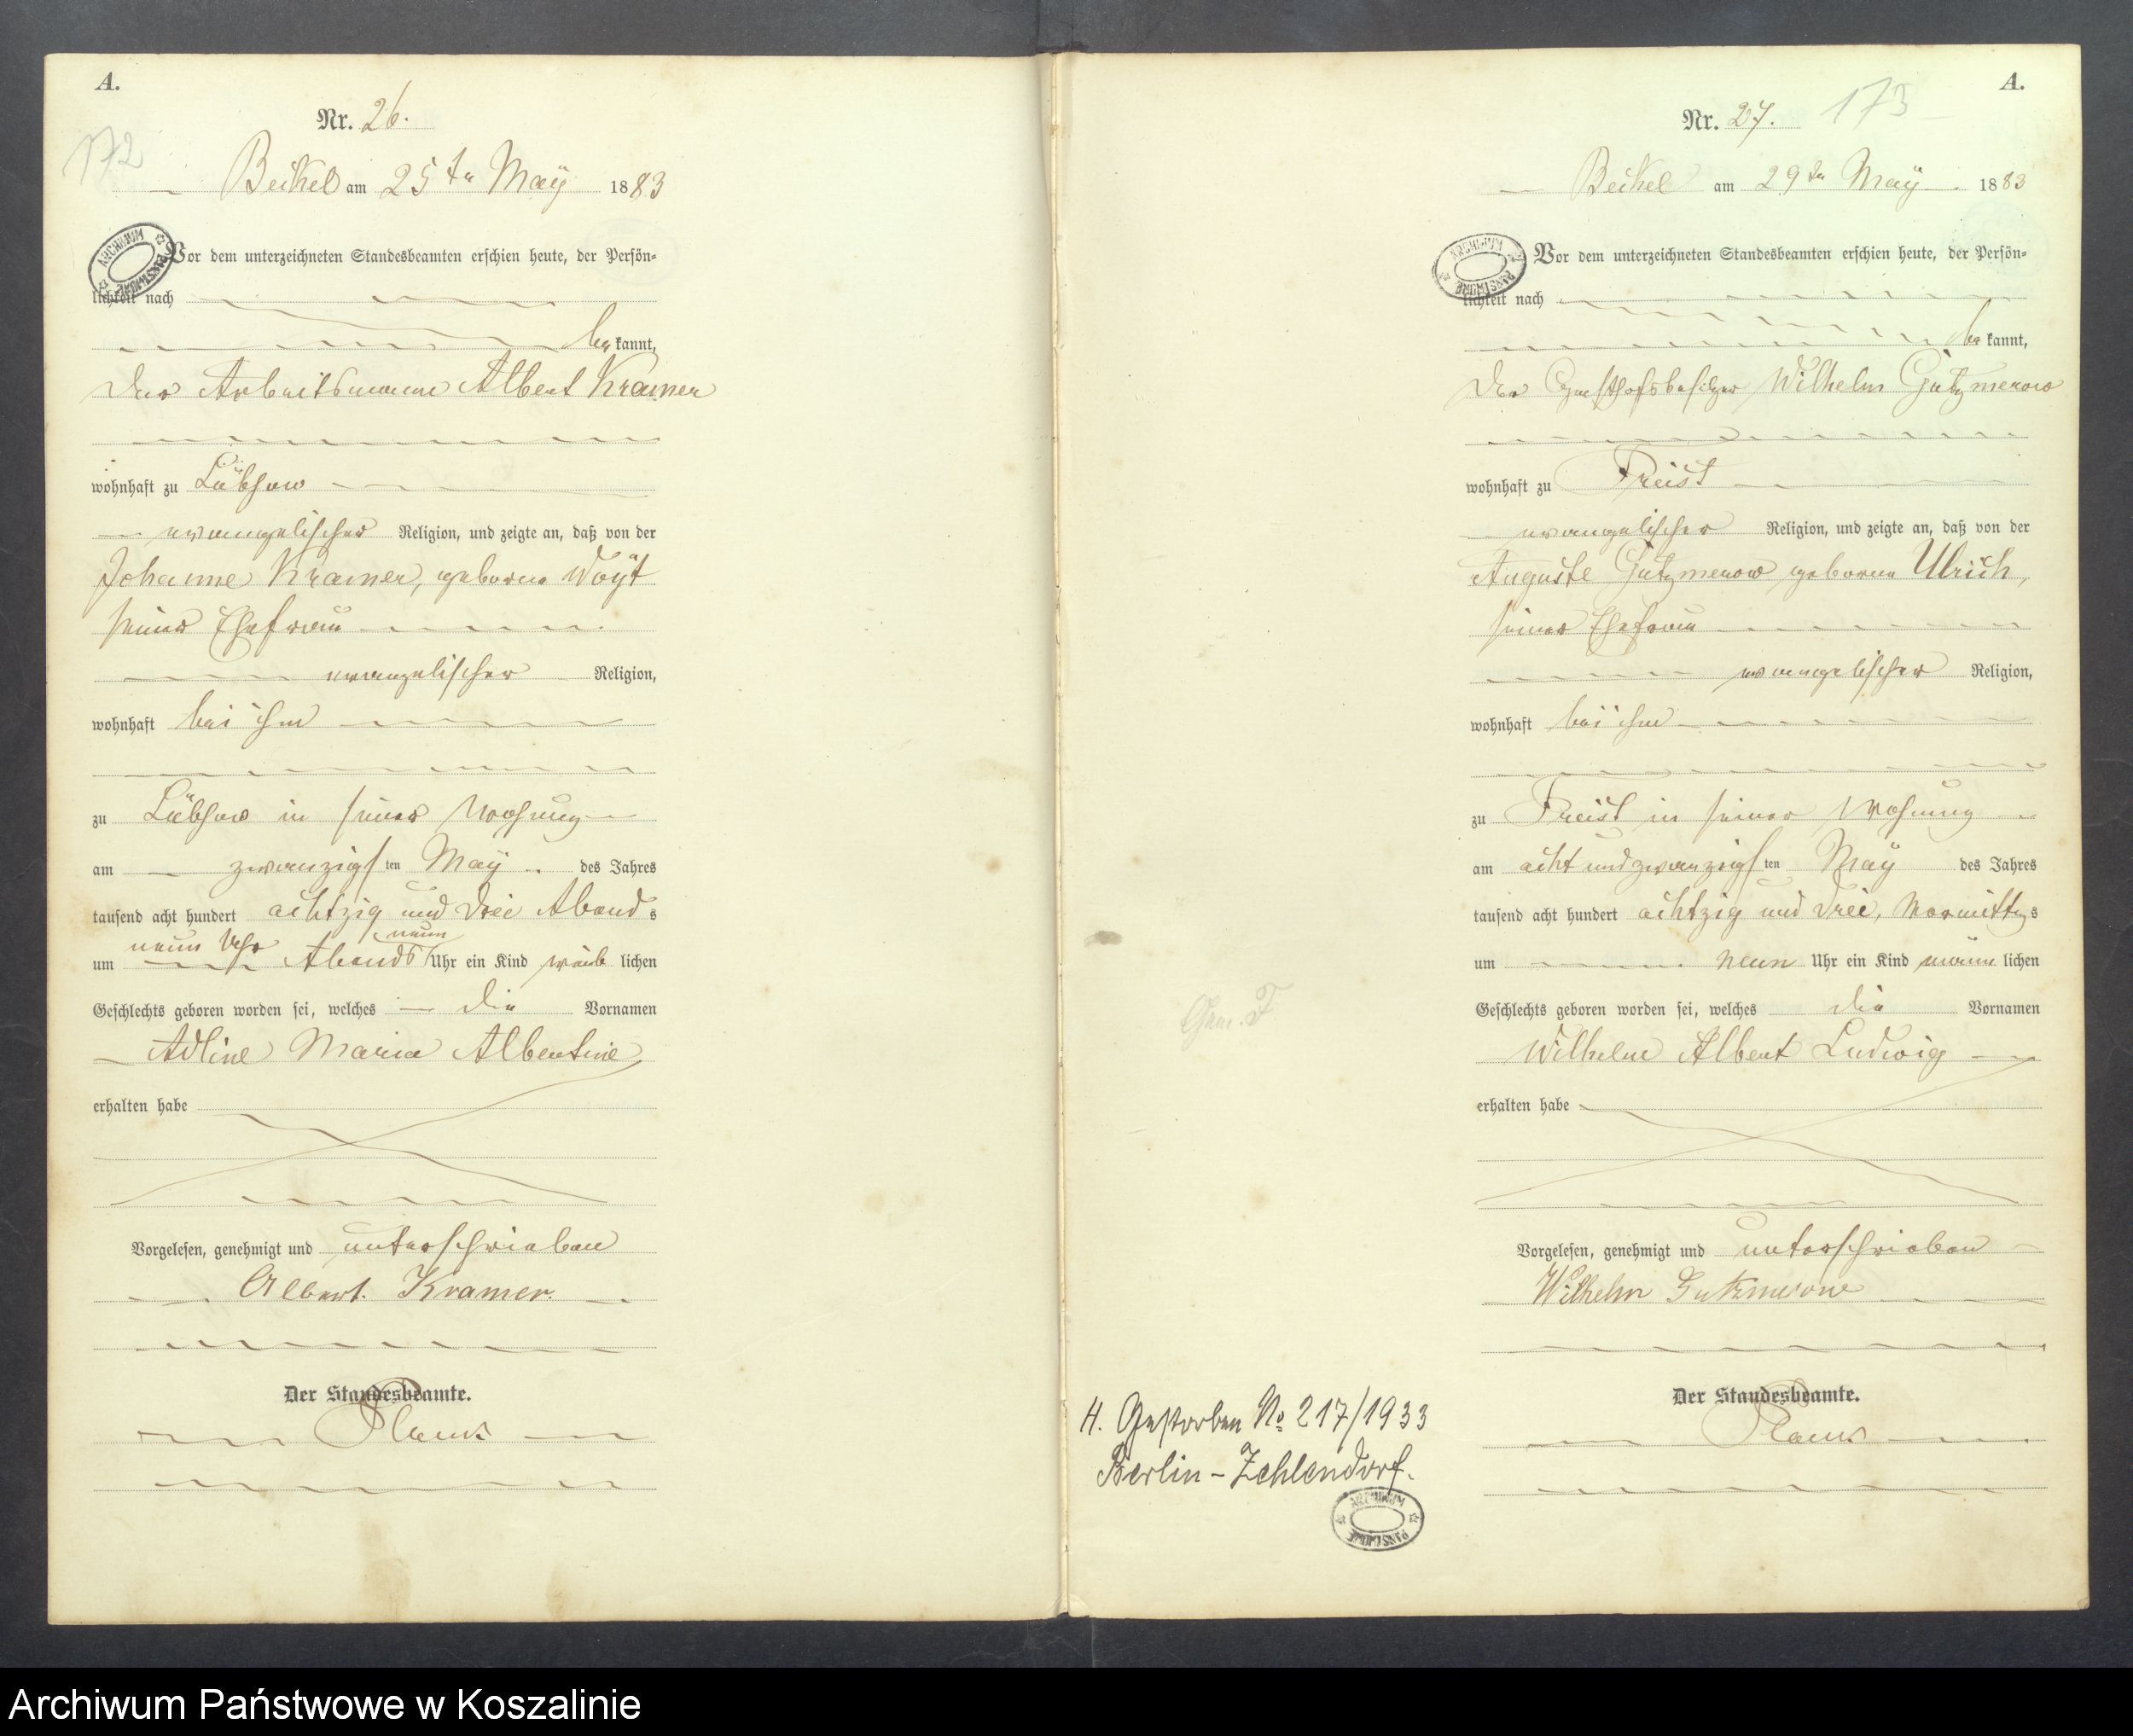 A.
Nr. 26.
172
Beckel am 25ten Maÿ 1883
ARCHIWUM PAŃSTWOWE
Vor dem unterzeichneten Standesbeamten erschien heute, der Persön-
lichkeit nach
be kannt,
der Arbeitsmann Albert Kramer
wohnhaft zu Lübzow
evangelischer Religion, und zeigte an, daß von der
Johanne Kramer, geborne Voigt
seiner Ehefrau
evangelischer Religion,
wohnhaft bei ihm
zu Lübzow in seiner Wohnung
am zwanzigsten Maÿ des Jahres
tausend acht hundert achtzig und drei Abends
neun Uhr neun
um Abends Uhr ein Kind weib lichen
Geschlechts geboren worden sei, welches die Vornamen
Adline Maria Albertine
erhalten habe
Vorgelesen, genehmigt und unterschrieben
Albert Kramer
Der Standesbeamte.
A.
Nr. 27.
173
Beckel am 29ten Maÿ 1883
ARCHIWUM PAŃSTWOWE
Vor dem unterzeichneten Standesbeamten erschien heute, der Persön-
lichkeit nach
be kannt,
der Gasthofsbesitzer Wilhelm Gutzmerow
wohnhaft zu Freist
evangelischer Religion, und zeigte an, daß von der
Auguste Gutzmerow geborne Ulrich,
seiner Ehefrau
evangelischer Religion,
wohnhaft bei ihm
zu Freist in seiner Wohnung
am acht und zwanzigsten Maÿ des Jahres
tausend acht hundert achtzig und drei, Vormittags
um neun Uhr ein Kind männ lichen
Geschlechts geboren worden sei, welches die Vornamen
Wilhelm Albert Ludwig
erhalten habe
Vorgelesen, genehmigt und unterschrieben
Wilhelm Gutzmerow
Der Standesbeamte.
H. Gestorben No 217/1933
Berlin-Zehlendorf.
ARCHIWUM PAŃSTWOWE
Archiwum Państwowe w Koszalinie